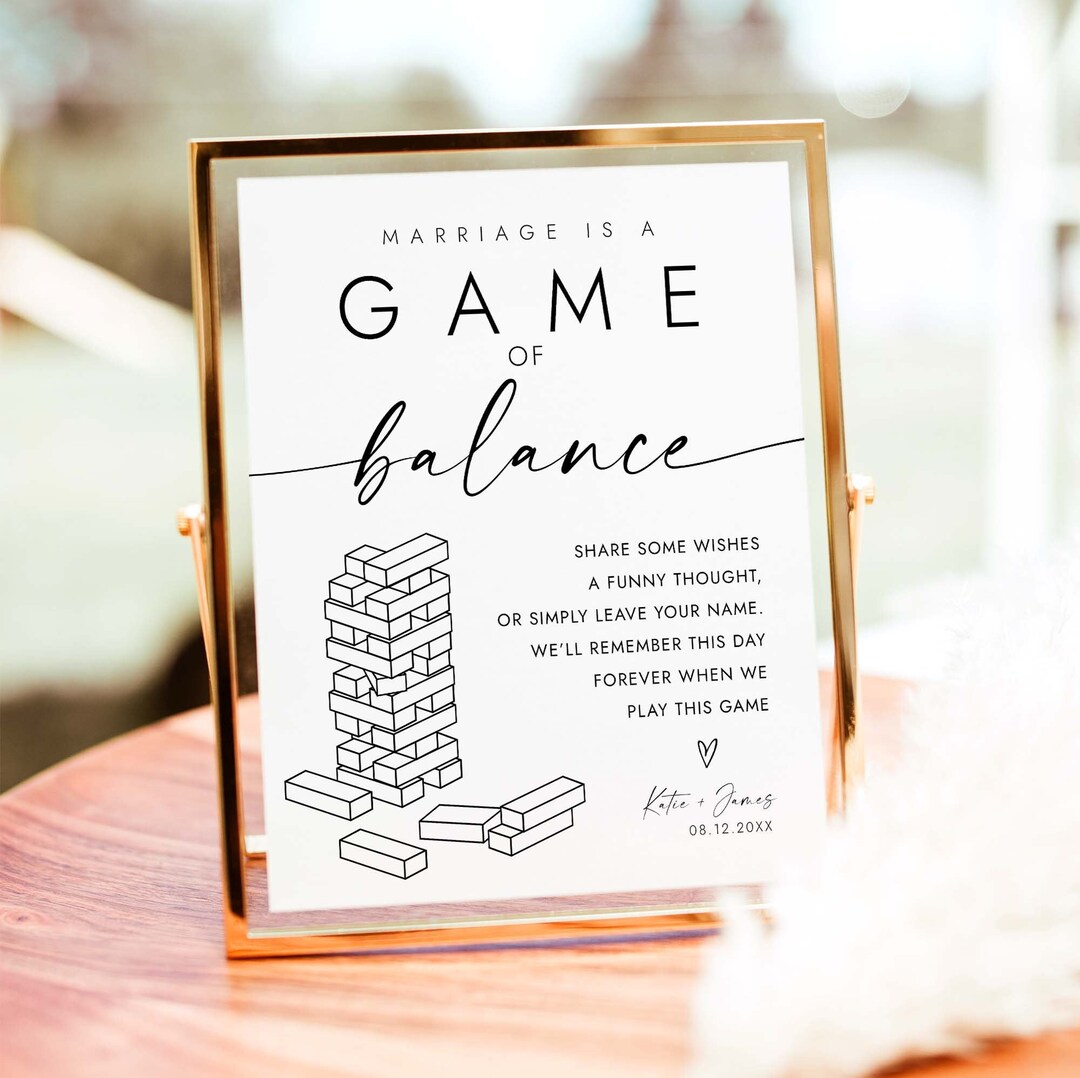 MARRIAGE IS A
GAME
OF
balance
SHARE SOME WISHES
A FUNNY THOUGHT,
OR SIMPLY LEAVE YOUR NAME.
WE'LL REMEMBER THIS DAY
FOREVER WHEN WE
PLAY THIS GAME
Katie + James
08.12.20XX